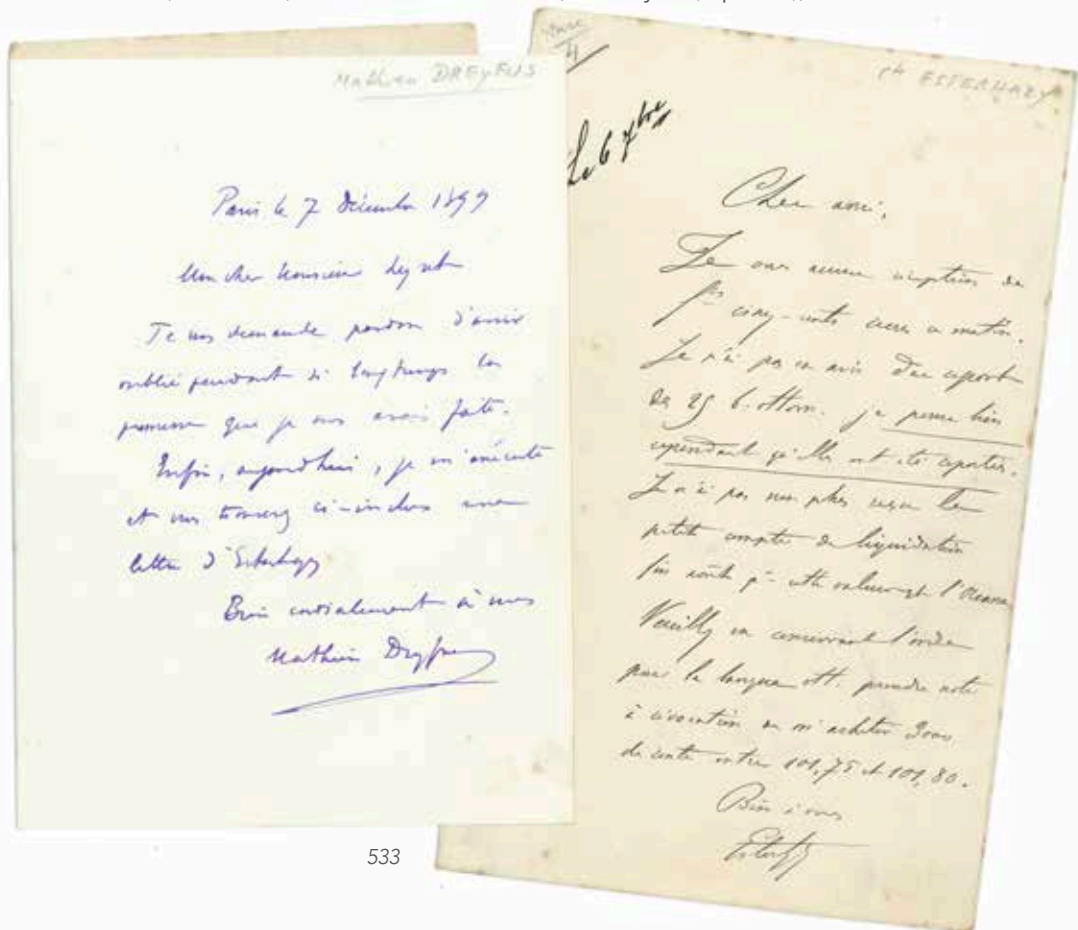 Mathieu DREYFUS
Paris le 7 Décembre 1899
Mon cher Monsieur
Je vous demande pardon d'avoir
oublié pendant si longtemps la
promesse que je vous avais faite.
Enfin, aujourd'hui, je m'exécute
et vous trouverez ci-inclus une
lettre d'Esterhazy
Bien cordialement à vous
Mathieu Dreyfus
4
Ct ESTERHAZY
Le 6 7bre
Cher ami,
Je vous accuse réception de
cinq-cents ce matin.
Je n'ai pas eu avis d'un report
des 25 b. ottom. je pense bien
cependant qu'elles ont été reportées.
Je n'ai pas non plus reçu le
petit compte de liquidation
Veuillez en conservant l'ordre
pour la banque ott. prendre note
à m'acheter 3000
de rente entre 101,75 et 101,80.
Bien à vous
Esterhazy
533